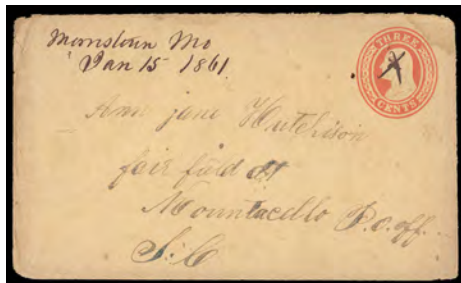 Morristown Mo
Jan 15 1861
THREE
CENTS
Ann jane Hutchison
fair field
Mounta​cello P.O. off.
S. C